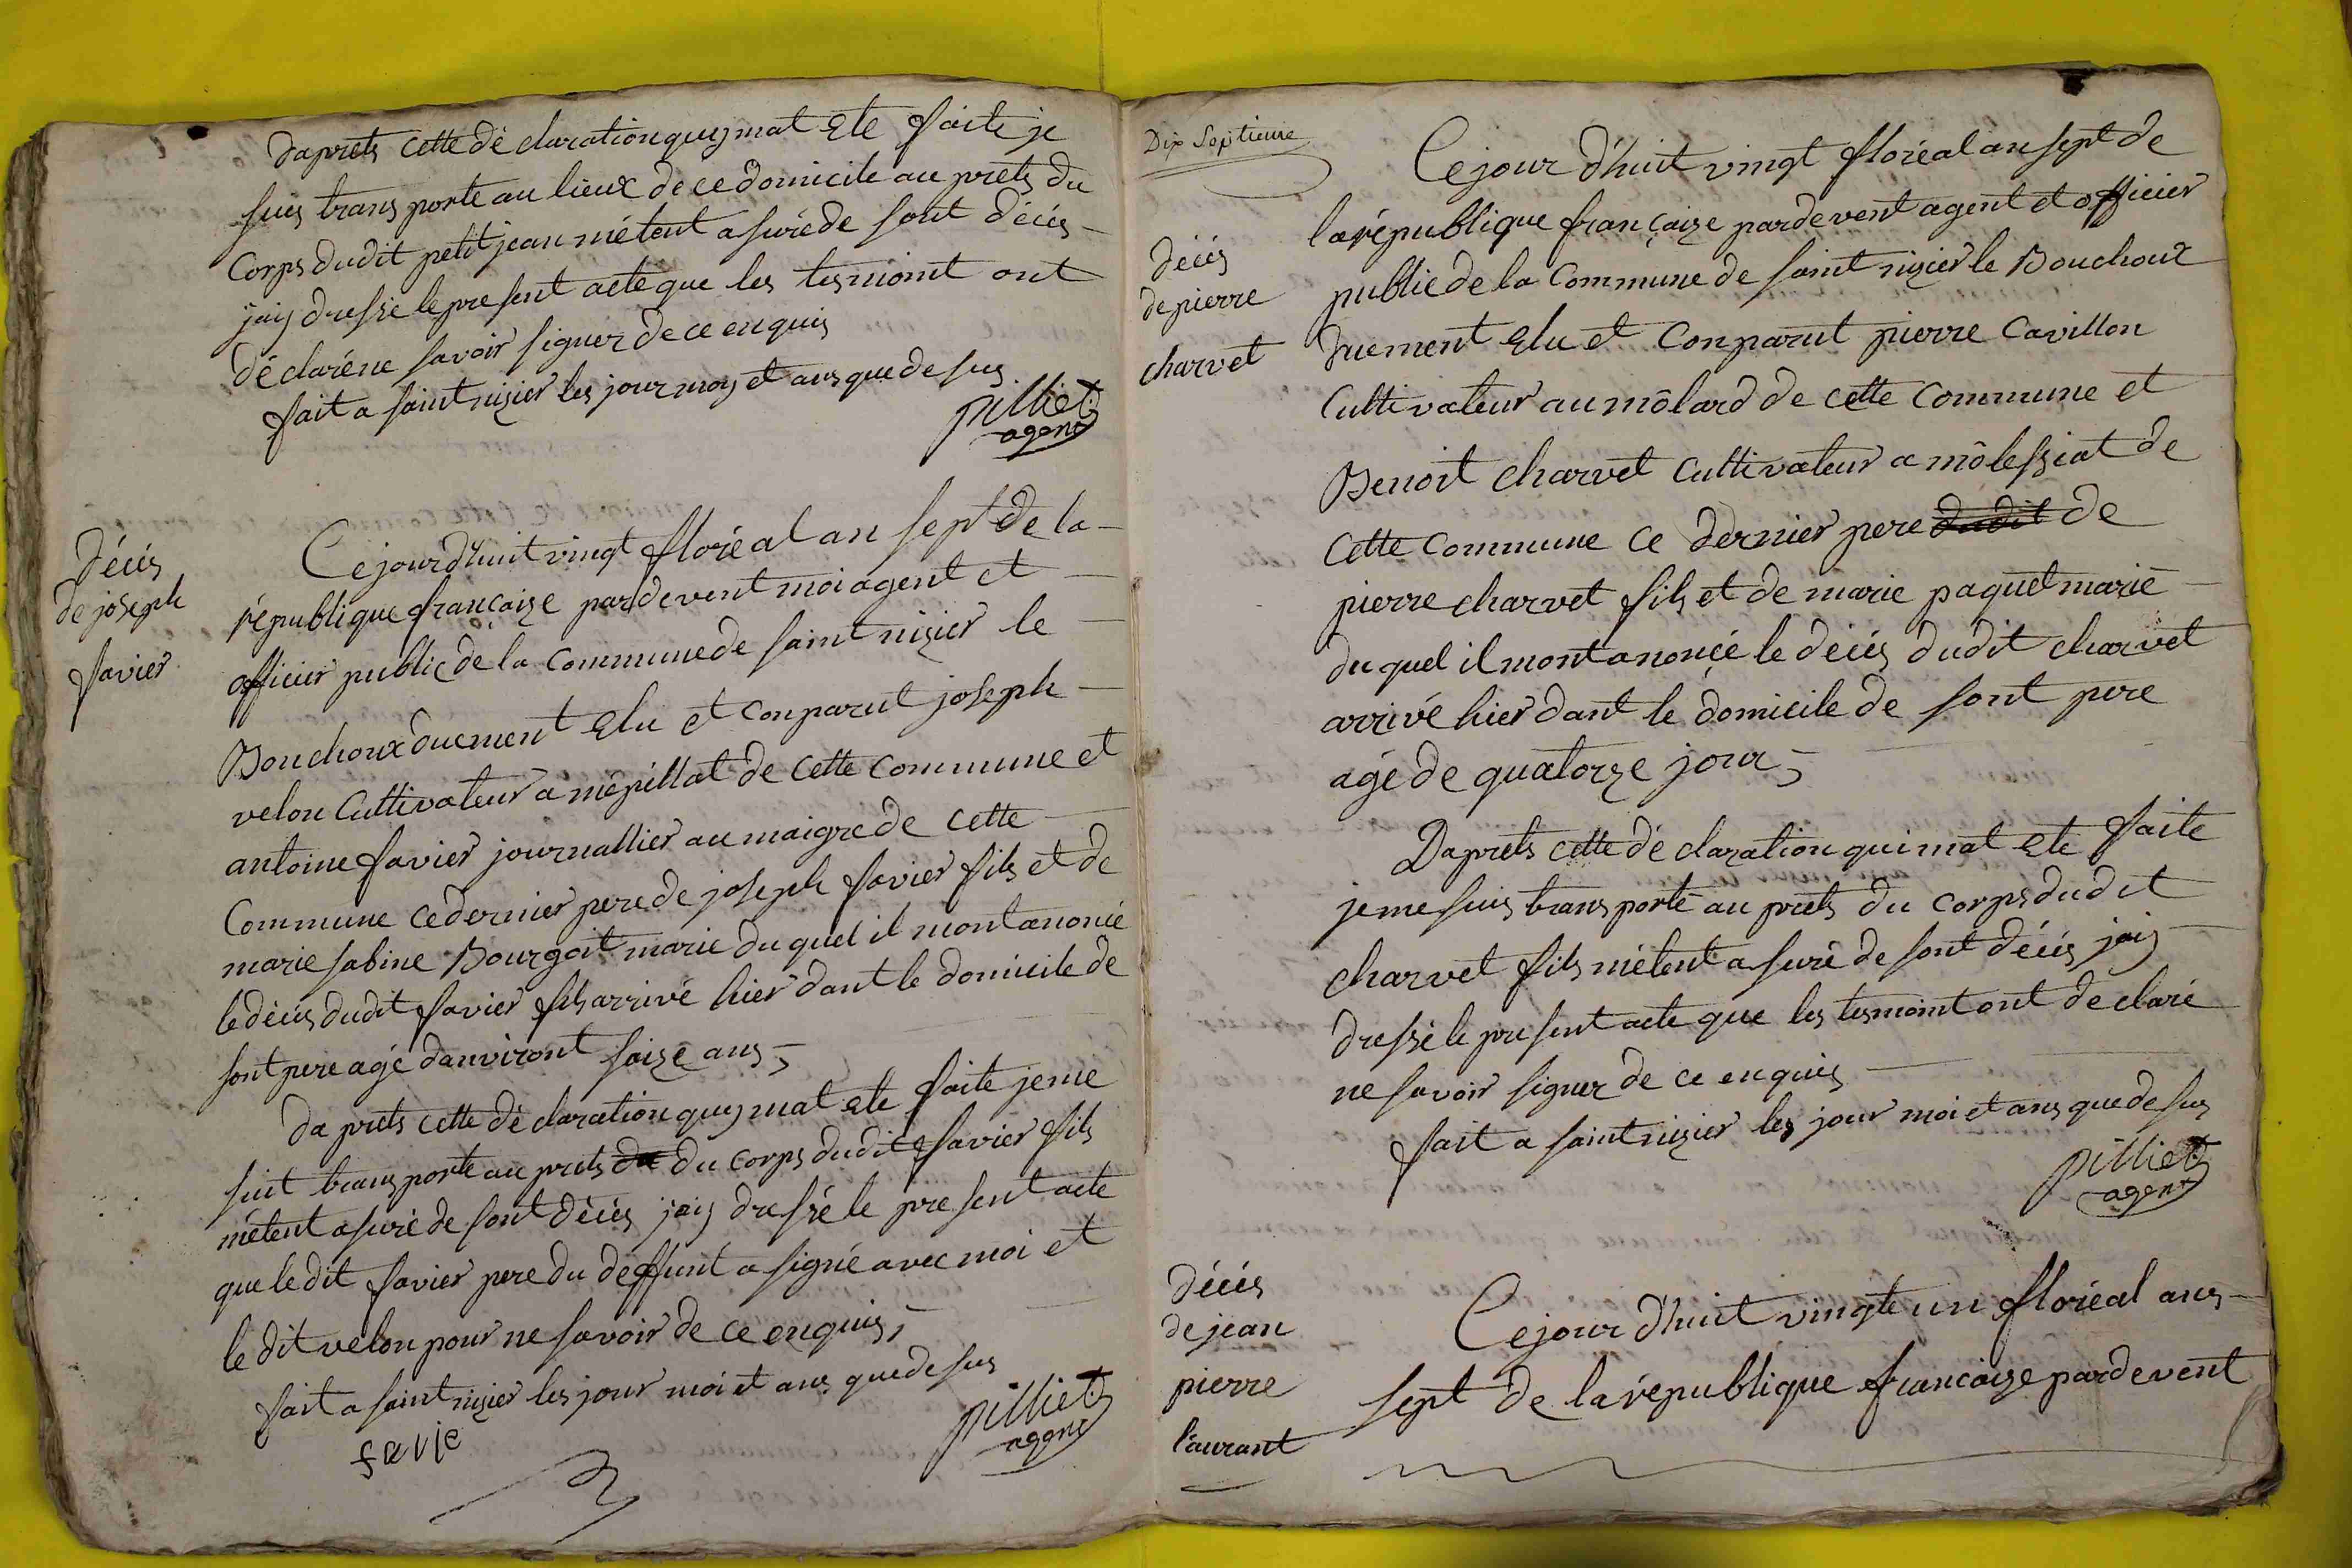 daprets cette dé claration quy mat ete faite je
suis trans porte au lieux de ce domicile au prets du
Corps dudit petit jean métent a suré de sont décés
jaiy dressé le present acte que les tesmoint ont
déclaré ne savoir signer de ce enquis
fait a saint nizier les jour moy et ans que de sus
pilliet
agent
décés
de joseph
favier
Ce jour d'huit vingt floréal an sept de la
république française pardevent moi agent et
officier public de la Commune de saint nizier le
Bouchoux duement elu et conparut joseph
velon Cultivateur a mépillat de cette commune et
antoine favier journallier au maigre de cette
Commune ce dernier pere de joseph favier fils et de
marie sabine Bourgoit marié du quel il mont anoncé
le décés dudit favier fils arrivé hier dant le domicile de
sont pere agé danviront saize ans
da prets cette dé claration quy mat ete faite je me
suit trans porte au prets du du corps dudit favier fils
métent a suré de sont décés jaiy dressé le present acte
que le dit favier pere du deffunt a signé avec moi et
le dit velon pour ne savoir de ce enquis
fait a saint nizier les jour moi et ans que de sus
favie
pilliet
agent
Dix Septieme
décés
de pierre
charvet
Ce jour d'huit vingt floréal an sept de
la république française pardevent agent et officier
public de la Commune de saint nizier le Bouchoux
duement elu et Conparut pierre Cavillon
Cultivateur au môlard de cette Commune et
Benoit charvet Cultivateur a môlessiat de
cette commune ce dernier pere dudit de
pierre charvet fils et de marie paquet marié
du quel il mont anoncé le décés dudit charvet
arrivé hier dant le domicile de sont pere
agé de quatorze jour
Daprets cette dé claration qui mat ete faite
je me suis trans porté au prets du corps dudit
charvet fils métent a suré de sont décés jaiy
dressé le present acte que les tesmoint ont déclaré
ne savoir signer de ce enquis
fait a saint nizier les jour moi et ans que de sus
pilliet
agent
décés
de jean
pierre
laurant
Ce jour d'huit vingte un floréal ans
sept de la république francaise pardevent